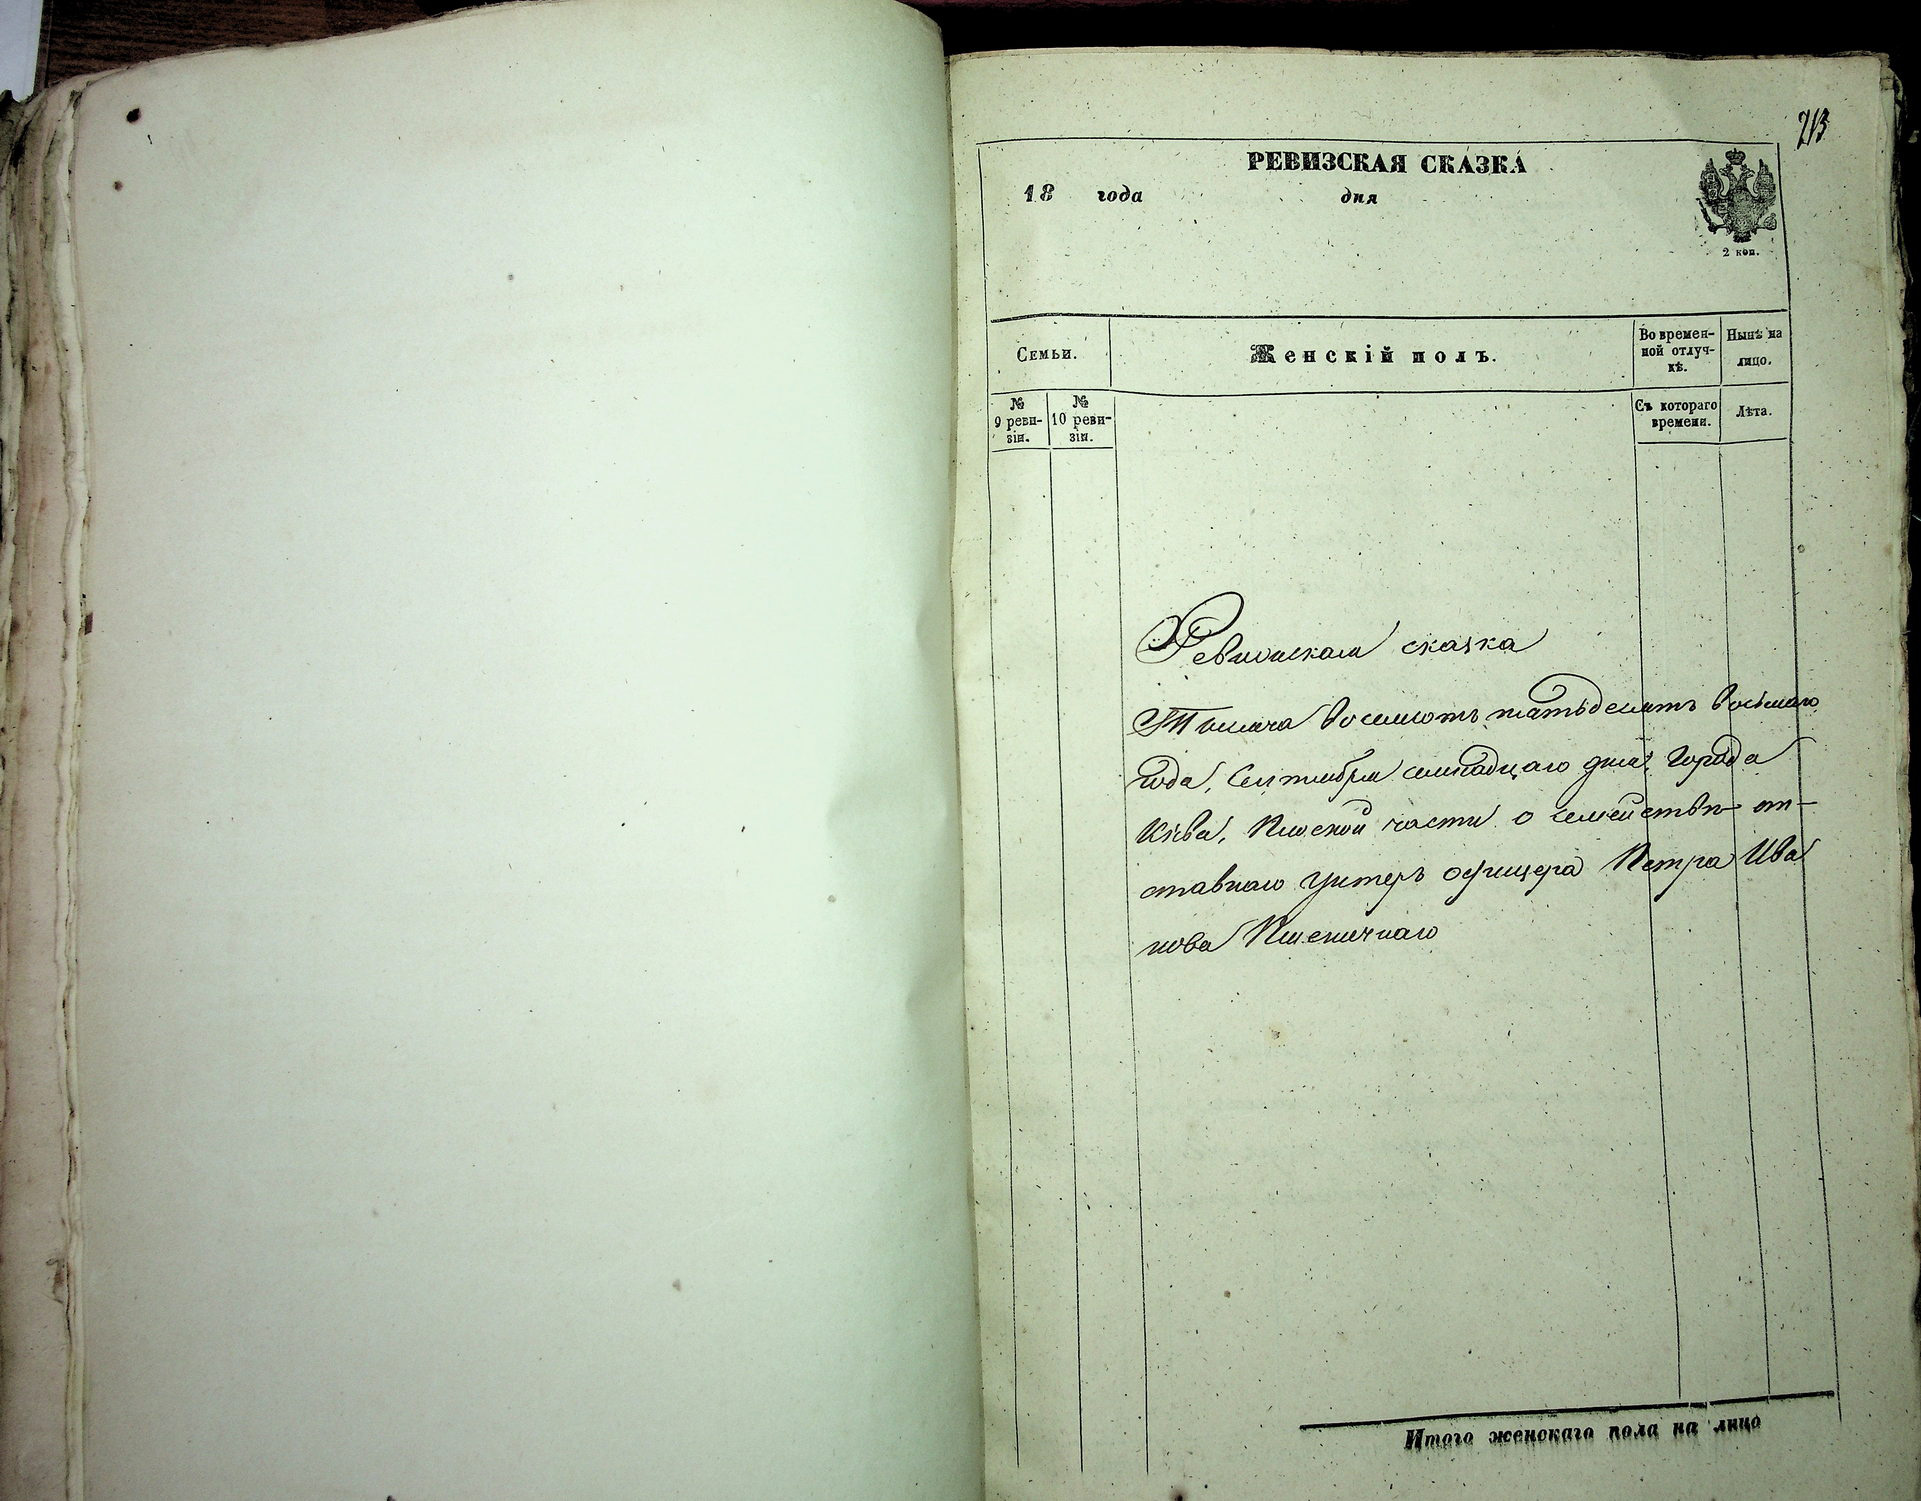 213
РЕВИЗСКАЯ СКАЗКА
18 года дня
2 коп.
Семьи.
Женскій полъ.
Во времен-
ной отлуч-
кѣ.
Нынѣ на
лицо.
№
9 реви-
зіи.
№
10 реви-
зіи.
Съ котораго
времени.
Лѣта.
Ревизская сказка
Тысяча восемсотъ пятьдесятъ восьмаго
года, Сентября дня, Города
Кіева, Плоской части о семействѣ от-
ставнаго унтеръ офицера Петра Ива
нова Пшеничнаго
Итого женскаго пола на лицо